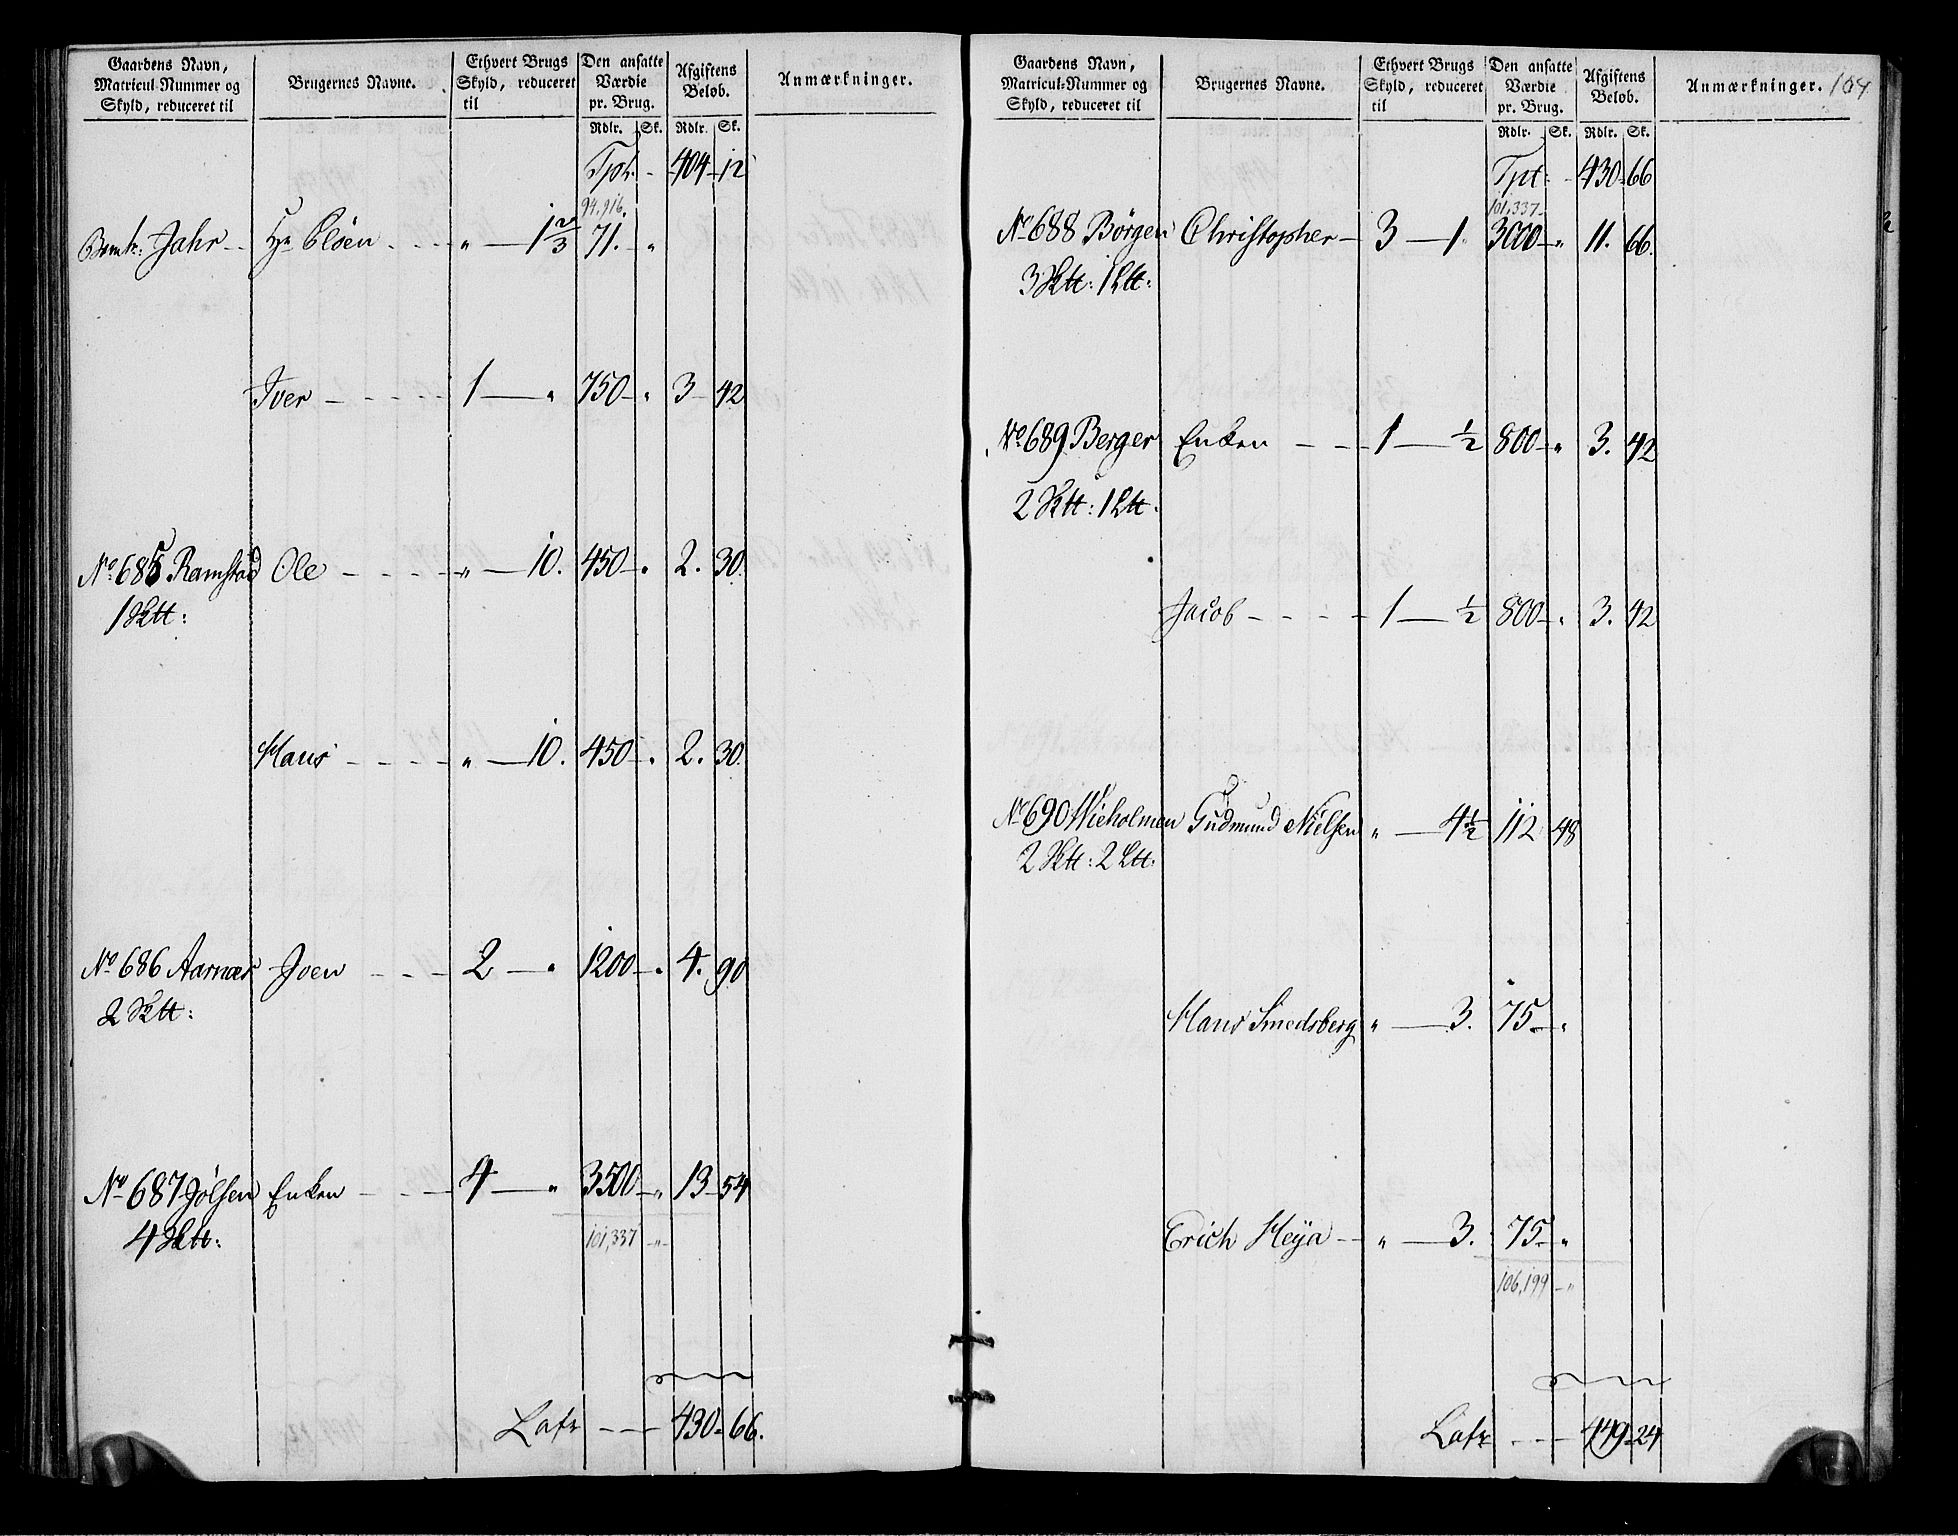 Gaardens Navn, Matricul-Nummer og Skyld, reduceret til
Brugernes Navne.
Ethvert Brugs Skyld, reduceret til
Den ansatte Værdie pr. Brug.
Afgiftens Beløb.
Anmærkninger.
Rdlr. Sk. Rdlr. Sk.
Tpt. - 404 - 12
94,916.
Jahr - - Hr Cloen - - - - " - 1 2/3 71. - "
Iver - - - - - 1 - " 750 - " 3 - 42
No 685 Ramstad Ole - - - - - " - 10. 450 - " 2. 30.
1 Sktt:
Hans - - - - " - 10. 450 - " 2. 30.
No 686 Aarnæs Joen - - - 2 - " 1200 - " 4. 90
2 Sktt:
No 687 Jølsen Enken - - - - 4 - " 3500 - " 13 - 54
4 Sktt:
101,337 - " -
Latr - - - 430 - 66.
Gaardens Navn, Matricul-Nummer og Skyld, reduceret til
Brugernes Navne.
Ethvert Brugs Skyld, reduceret til
Den ansatte Værdie pr. Brug.
Afgiftens Beløb.
Anmærkninger. 104
Rdlr. Sk. Rdlr. Sk.
Tpt: - 430 - 66
101,337 -
No 688 Børgen Christopher - 3 - 1. 3000 - " 11. 66.
3 Sktt: 1 Ltt:
No 689 Berger Enken - - - 1 - 1/2 800 - " 3. 42
2 Sktt: 1 Ltt.
Jacob - - - - 1 - 1/2 800 - " 3. 42
No 690 Wieholmen Gudmund Nielsen " - 4 1/2 112 48
2 Sktt: 2 Ltt:
Hans Smedsberg " - 3. 75 - "
Erich Heÿa - - " - 3. 75 - "
106,199 - "
Latr - - - 449 - 24